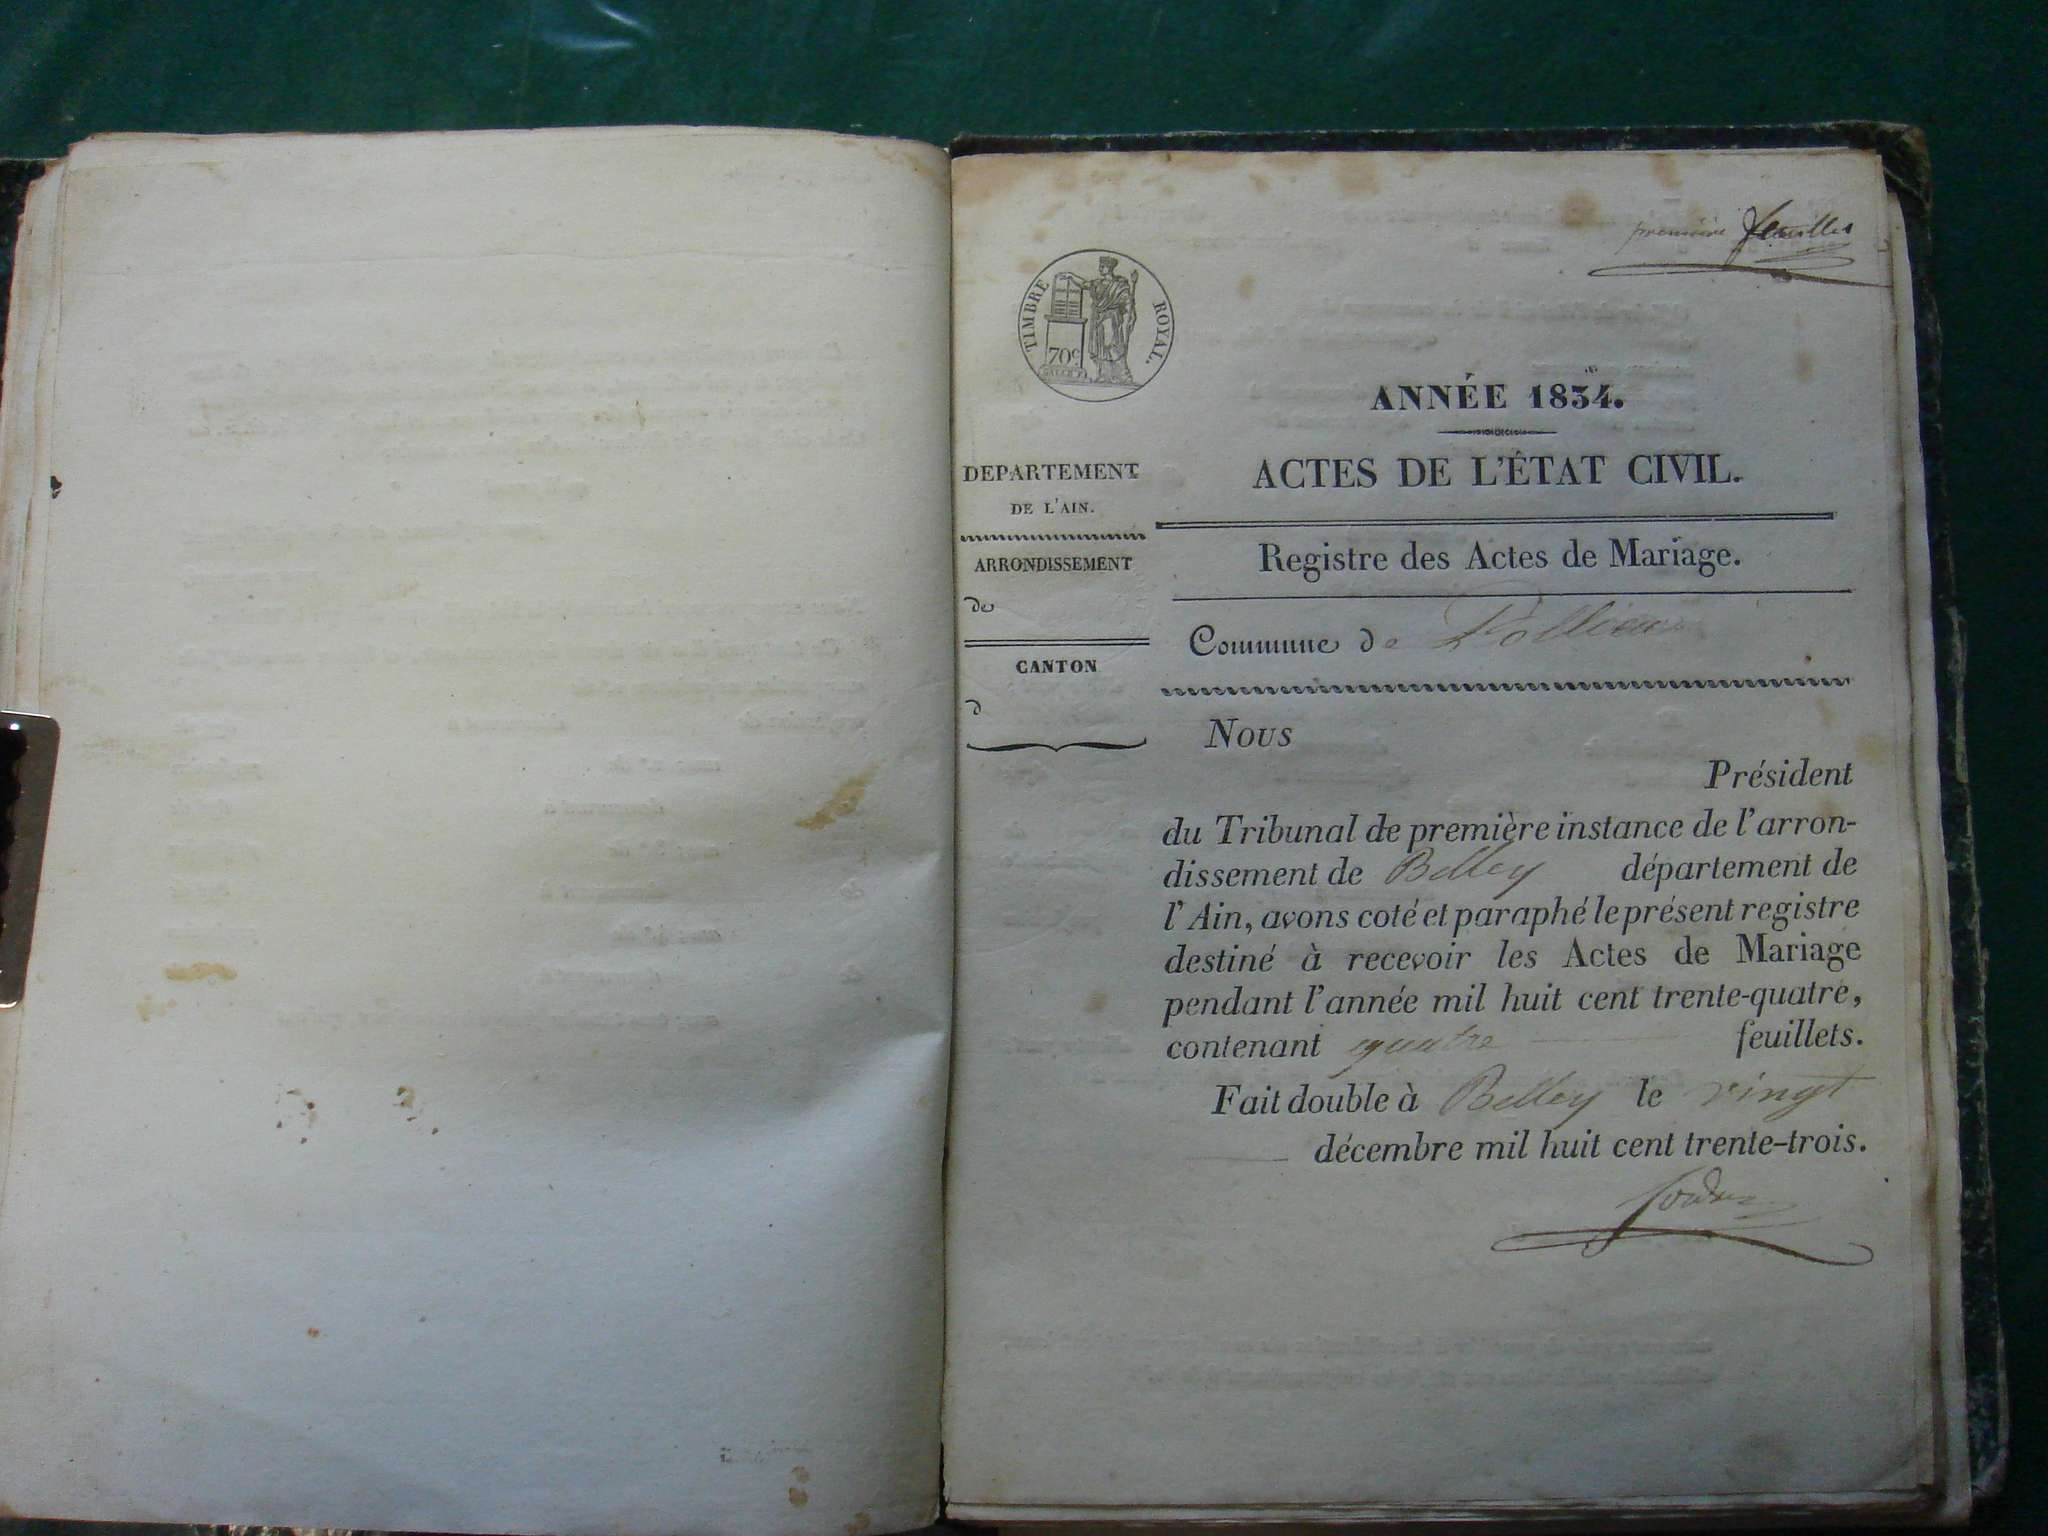 première feuillet
TIMBRE ROYAL.
70c
ANNÉE 1834.
ACTES DE L'ÉTAT CIVIL.
DEPARTEMENT
DE L'AIN.
ARRONDISSEMENT
de
CANTON
d
Registre des Actes de Mariage.
Commune de Pollieu
Nous
Président
du Tribunal de première instance de l'arron-
dissement de Belley département de
l'Ain, avons coté et paraphé le présent registre
destiné à recevoir les Actes de Mariage
pendant l'année mil huit cent trente-quatre,
contenant quatre feuillets.
Fait double à Belley le vingt
décembre mil huit cent trente-trois.